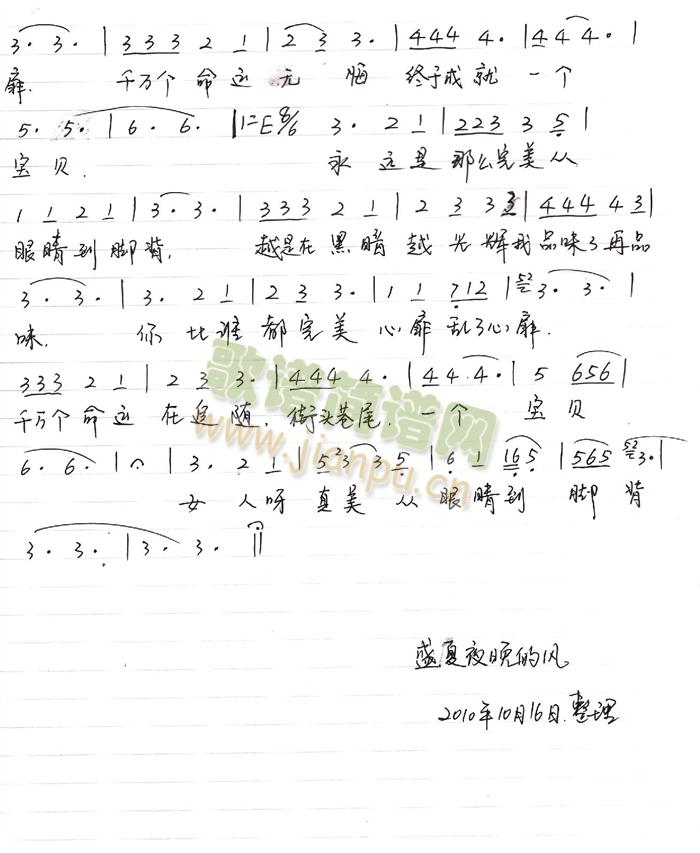 3· 3· | 3 3 3 2 1 | 2 3 3· | 4 4 4 4· | 4 4 4· |
扉. 千万个 命运 无 悔 终于成就 一个
5· 5· | 6· 6· | 1=E 6/8 3· 2 1 | 2 2 3 3 5 |
宝贝. 永远是那么完美从
1 1 2 1 | 3· 3· | 3 3 3 2 1 | 2 3 3 3 | 4 4 4 4 3 |
眼睛到脚背, 越是在黑暗越光辉我品味了再品
3· 3· | 3· 2 1 | 2 3 3· | 1 1 7 1 2 | 5 2 3· 3· |
味. 你比谁都完美 心扉乱了心扉.
3 3 3 2 1 | 2 3 3· | 4 4 4 4· | 4 4 4· | 5 6 5 6 |
千万个命运 在追随, 街头巷尾. 一个 宝贝
6· 6· | | 3· 2 1 | 5 2 3 3 5 | 6 1 1 6 5 | 5 6 5 5 2 3· |
女人呀真美从眼睛到 脚背
3· 3· | 3· 3· ||
歌谱简谱网
www.jianpu.cn
盛夏夜晚的风
2010年10月16日.整理